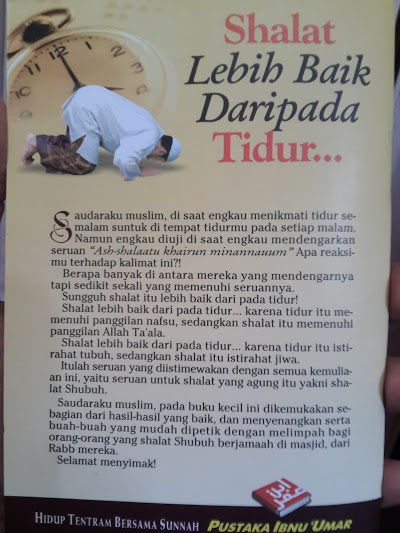 Shalat
Lebih Baik
Daripada
Tidur...
Saudaraku muslim, di saat engkau menikmati tidur se-
malam suntuk di tempat tidurmu pada setiap malam.
Namun engkau diuji di saat engkau mendengarkan
seruan "Ash-shalaatu khairun minannauum" Apa reaksi-
mu terhadap kalimat ini?!
Berapa banyak di antara mereka yang mendengarnya
tapi sedikit sekali yang memenuhi seruannya.
Sungguh shalat itu lebih baik dari pada tidur!
Shalat lebih baik dari pada tidur... karena tidur itu me-
menuhi panggilan nafsu, sedangkan shalat itu memenuhi
panggilan Allah Ta'ala.
Shalat lebih baik dari pada tidur... karena tidur itu isti-
rahat tubuh, sedangkan shalat itu istirahat jiwa.
Itulah seruan yang diistimewakan dengan semua kemulia-
an ini, yaitu seruan untuk shalat yang agung itu yakni sha-
lat Shubuh.
Saudaraku muslim, pada buku kecil ini dikemukakan se-
bagian dari hasil-hasil yang baik, dan menyenangkan serta
buah-buah yang mudah dipetik dengan melimpah bagi
orang-orang yang shalat Shubuh berjamaah di masjid, dari
Rabb mereka.
Selamat menyimak!
HIDUP TENTRAM BERSAMA SUNNAH PUSTAKA IBNU 'UMAR